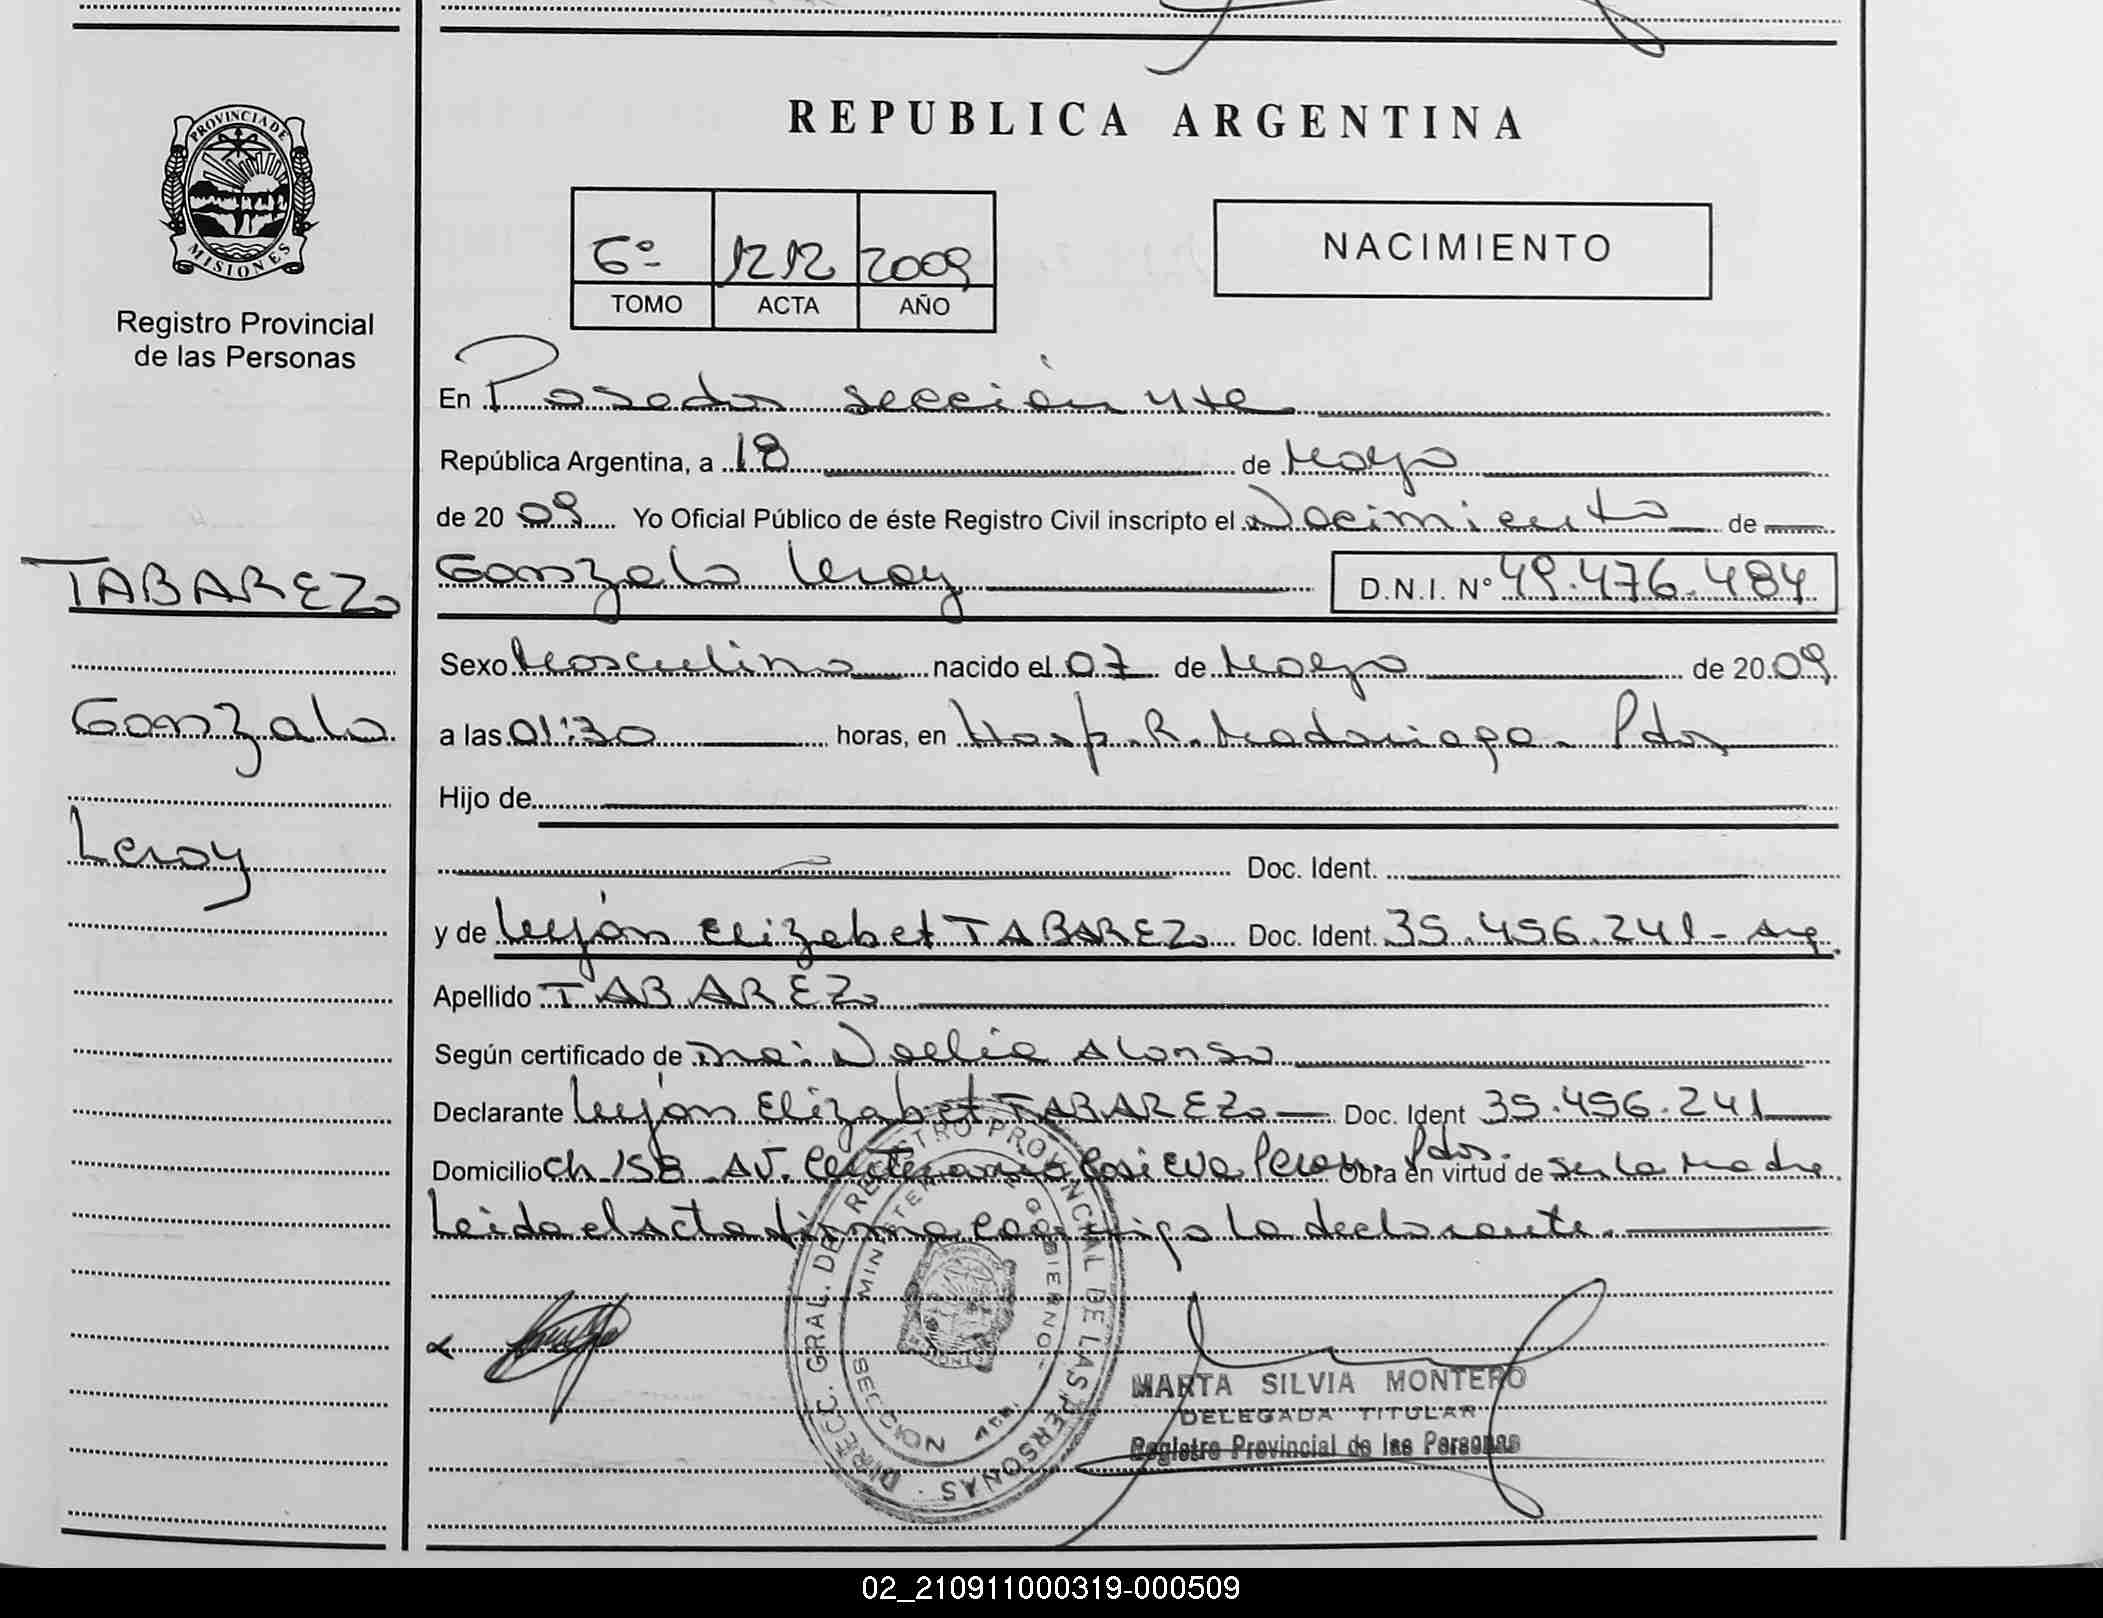 REPUBLICA ARGENTINA
PROVINCIA DE
MISIONES
Registro Provincial
de las Personas
6º 1212 2009
TOMO ACTA AÑO
NACIMIENTO
En Posadas sección 4ta
República Argentina, a 18 de Mayo
de 20 09 Yo Oficial Público de éste Registro Civil inscripto el Nacimiento de
TABAREZ
Gonzalo Leroy D.N.I. Nº 49.476.484
Sexo Masculino nacido el 07 de Mayo de 20 09
Gonzalo
a las 01:30 horas, en Hosp. R. Madariaga - Pdas
Hijo de
Leroy
Doc. Ident.
y de Luján Elizabet TABAREZ Doc. Ident. 35.456.241 - Arg.
Apellido TABAREZ
Según certificado de Dra: Noelia Alonso
Declarante Luján Elizabet TABAREZ Doc. Ident 35.456.241
Domicilio Ch 158 Av. Centenario casi Eva Peron. Pdas. Obra en virtud de ser la Madre
Leida el Acta firma conmigo la declarante.
DIRECC. GRAL. DEL REGISTRO PROVINCIAL DE LAS PERSONAS
MINISTERIO DE GOBIERNO
SECCION 4ta.
MARTA SILVIA MONTERO
DELEGADA TITULAR
Registro Provincial de las Personas
02_210911000319-000509